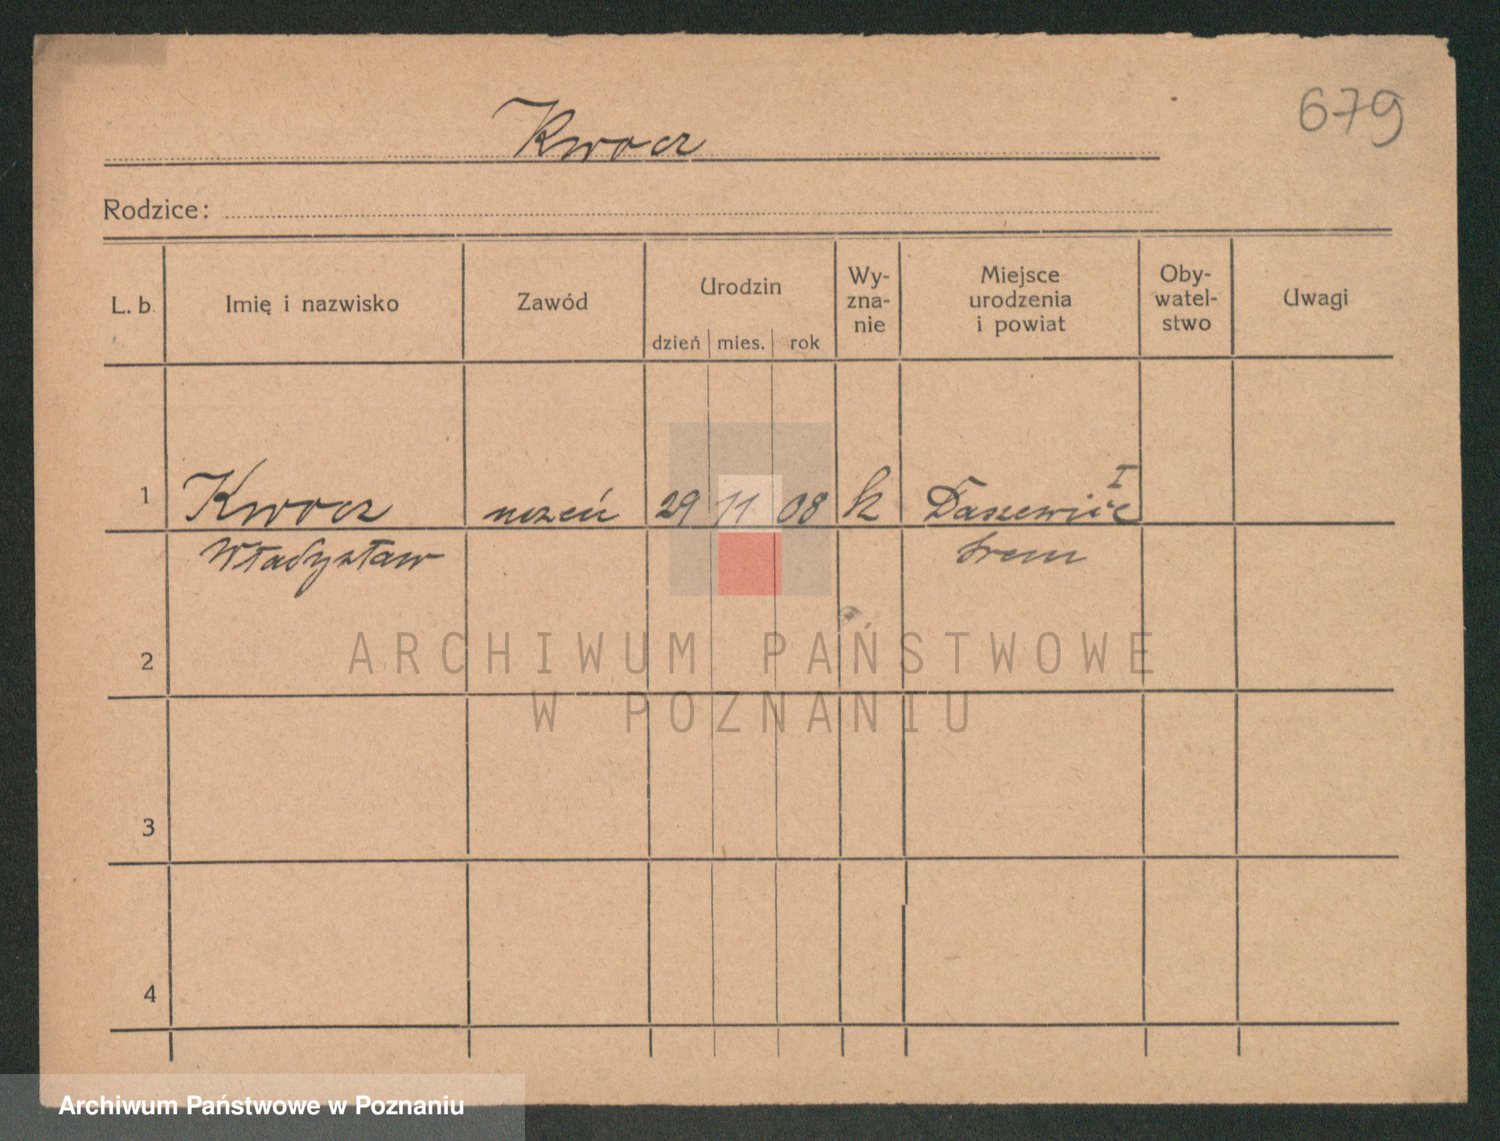 679
Kwocz
Rodzice:
L. b.
Imię i nazwisko
Zawód
Urodzin
dzień mies. rok
Wy-
zna-
nie
Miejsce
urodzenia
i powiat
Oby-
watel-
stwo
Uwagi
1 Kwocz uczeń 29 11 08 k Daszewice I
Władysław Śrem
2
3
4
ARCHIWUM PAŃSTWOWE
W POZNANIU
Archiwum Państwowe w Poznaniu